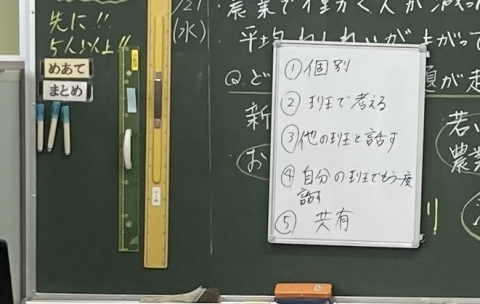 先に!!
5人以上!!
めあて
まとめ
/21
(水)
農業で働く人が減った
平均
が上がって
Q ど
が起
新
お
若い
農業
① 個別
② 班で考える
③ 他の班と話す
④ 自分の班でもう一度
話す
⑤ 共有